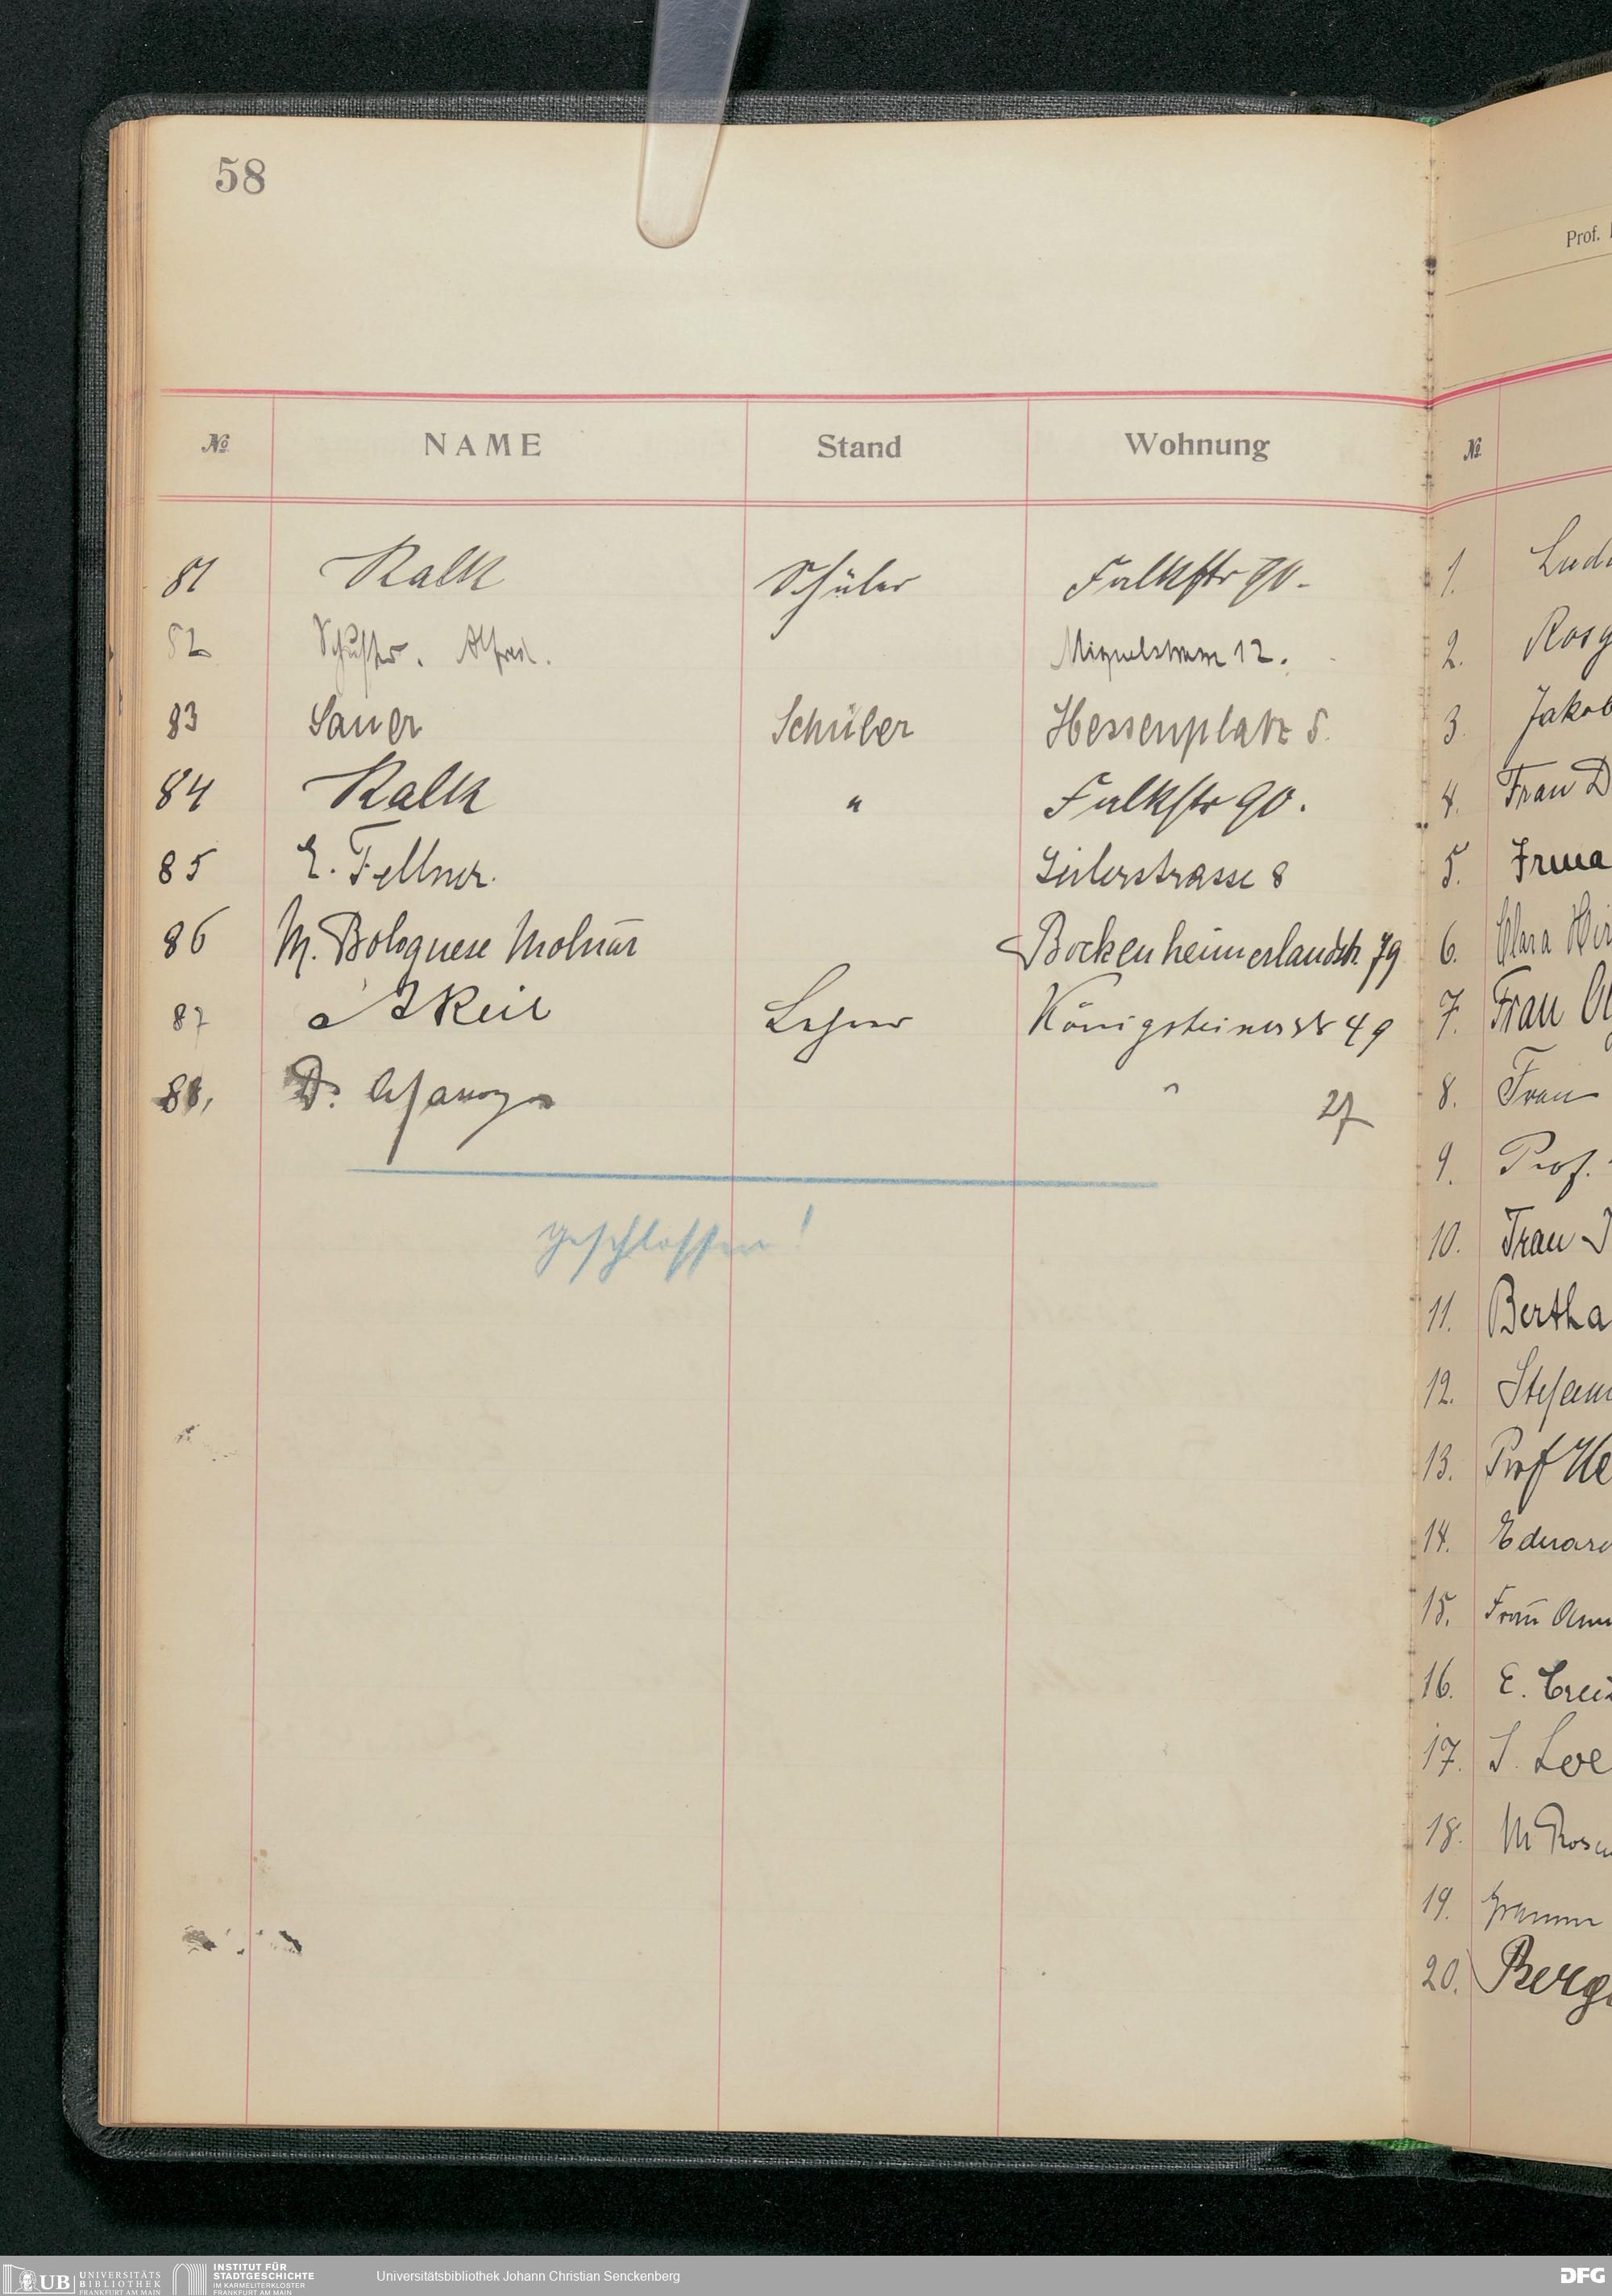 58
№ NAME Stand Wohnung
81 Kalk Schüler Falkstr 90.
82 Schuster. Alfred. Miquelstrasse 12.
83 Sauer Schüler Hessenplatz 5.
84 Kalk " Falkstr 90.
85 E. Fellner. Seilerstrasse 8
86 M. Bolognese Molnar Bockenheimerlandstr. 79
87 Keil Lehrer Königsteinerstr 49
88, Dr. " 27
geschlossen!
Prof.
№
1.
2.
3. Jakob
4. Frau D
5. Irma
6. Clara Hir
7. Frau
8. Frau
9. Prof.
10. Frau
11. Bertha
12.
13. Prof He
14. Eduard
15. Frau
16. E. Creiz
17. S. Loe
18. M Rosen
19.
20. Berg
UB UNIVERSITÄTS
BIBLIOTHEK
FRANKFURT AM MAIN
INSTITUT FÜR
STADTGESCHICHTE
IM KARMELITERKLOSTER
FRANKFURT AM MAIN
Universitätsbibliothek Johann Christian Senckenberg
DFG